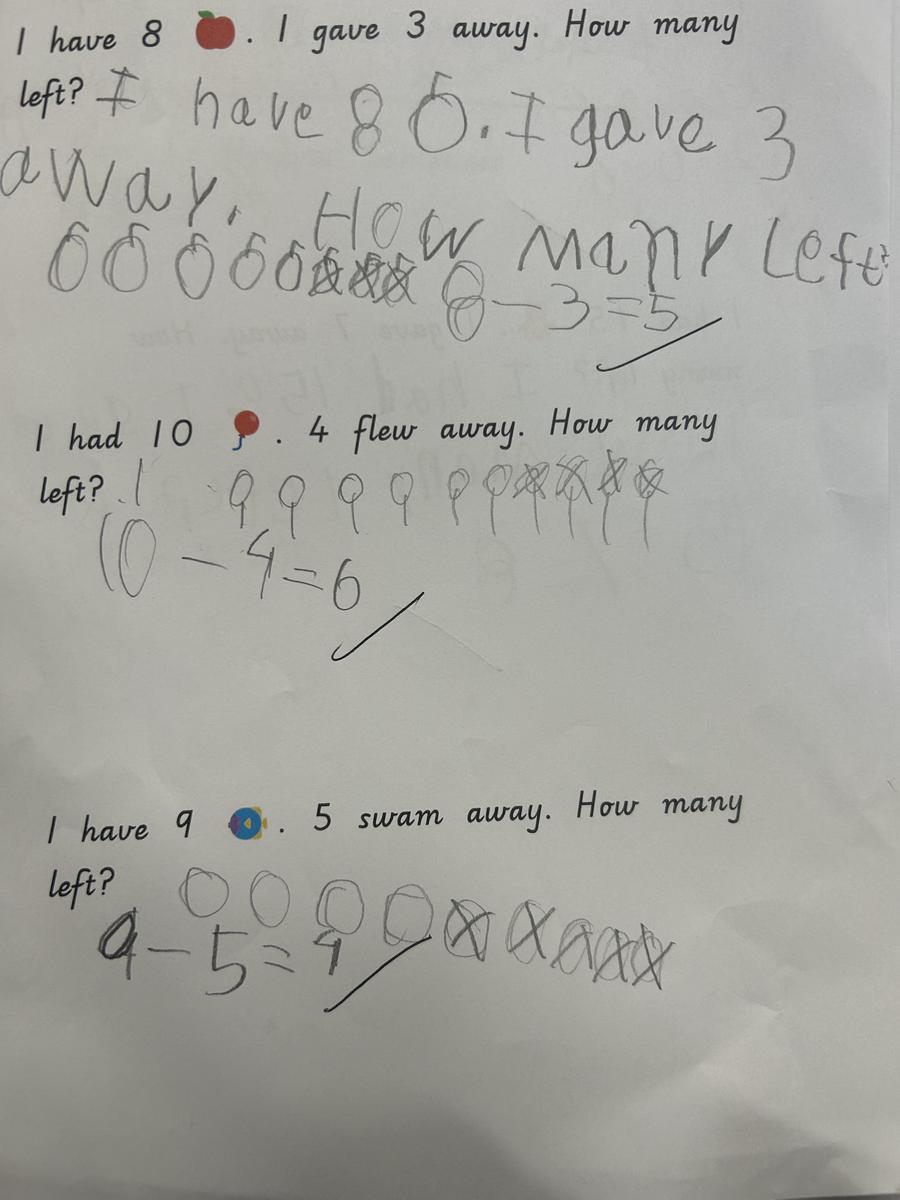 I have 8 🍎. I gave 3 away. How many
left? I have 8 . I gave 3
away. How many left?
8 - 3 = 5
I had 10 🎈. 4 flew away. How many
left? . I
10 - 4 = 6
I have 9 🐠. 5 swam away. How many
left?
9 - 5 = 4